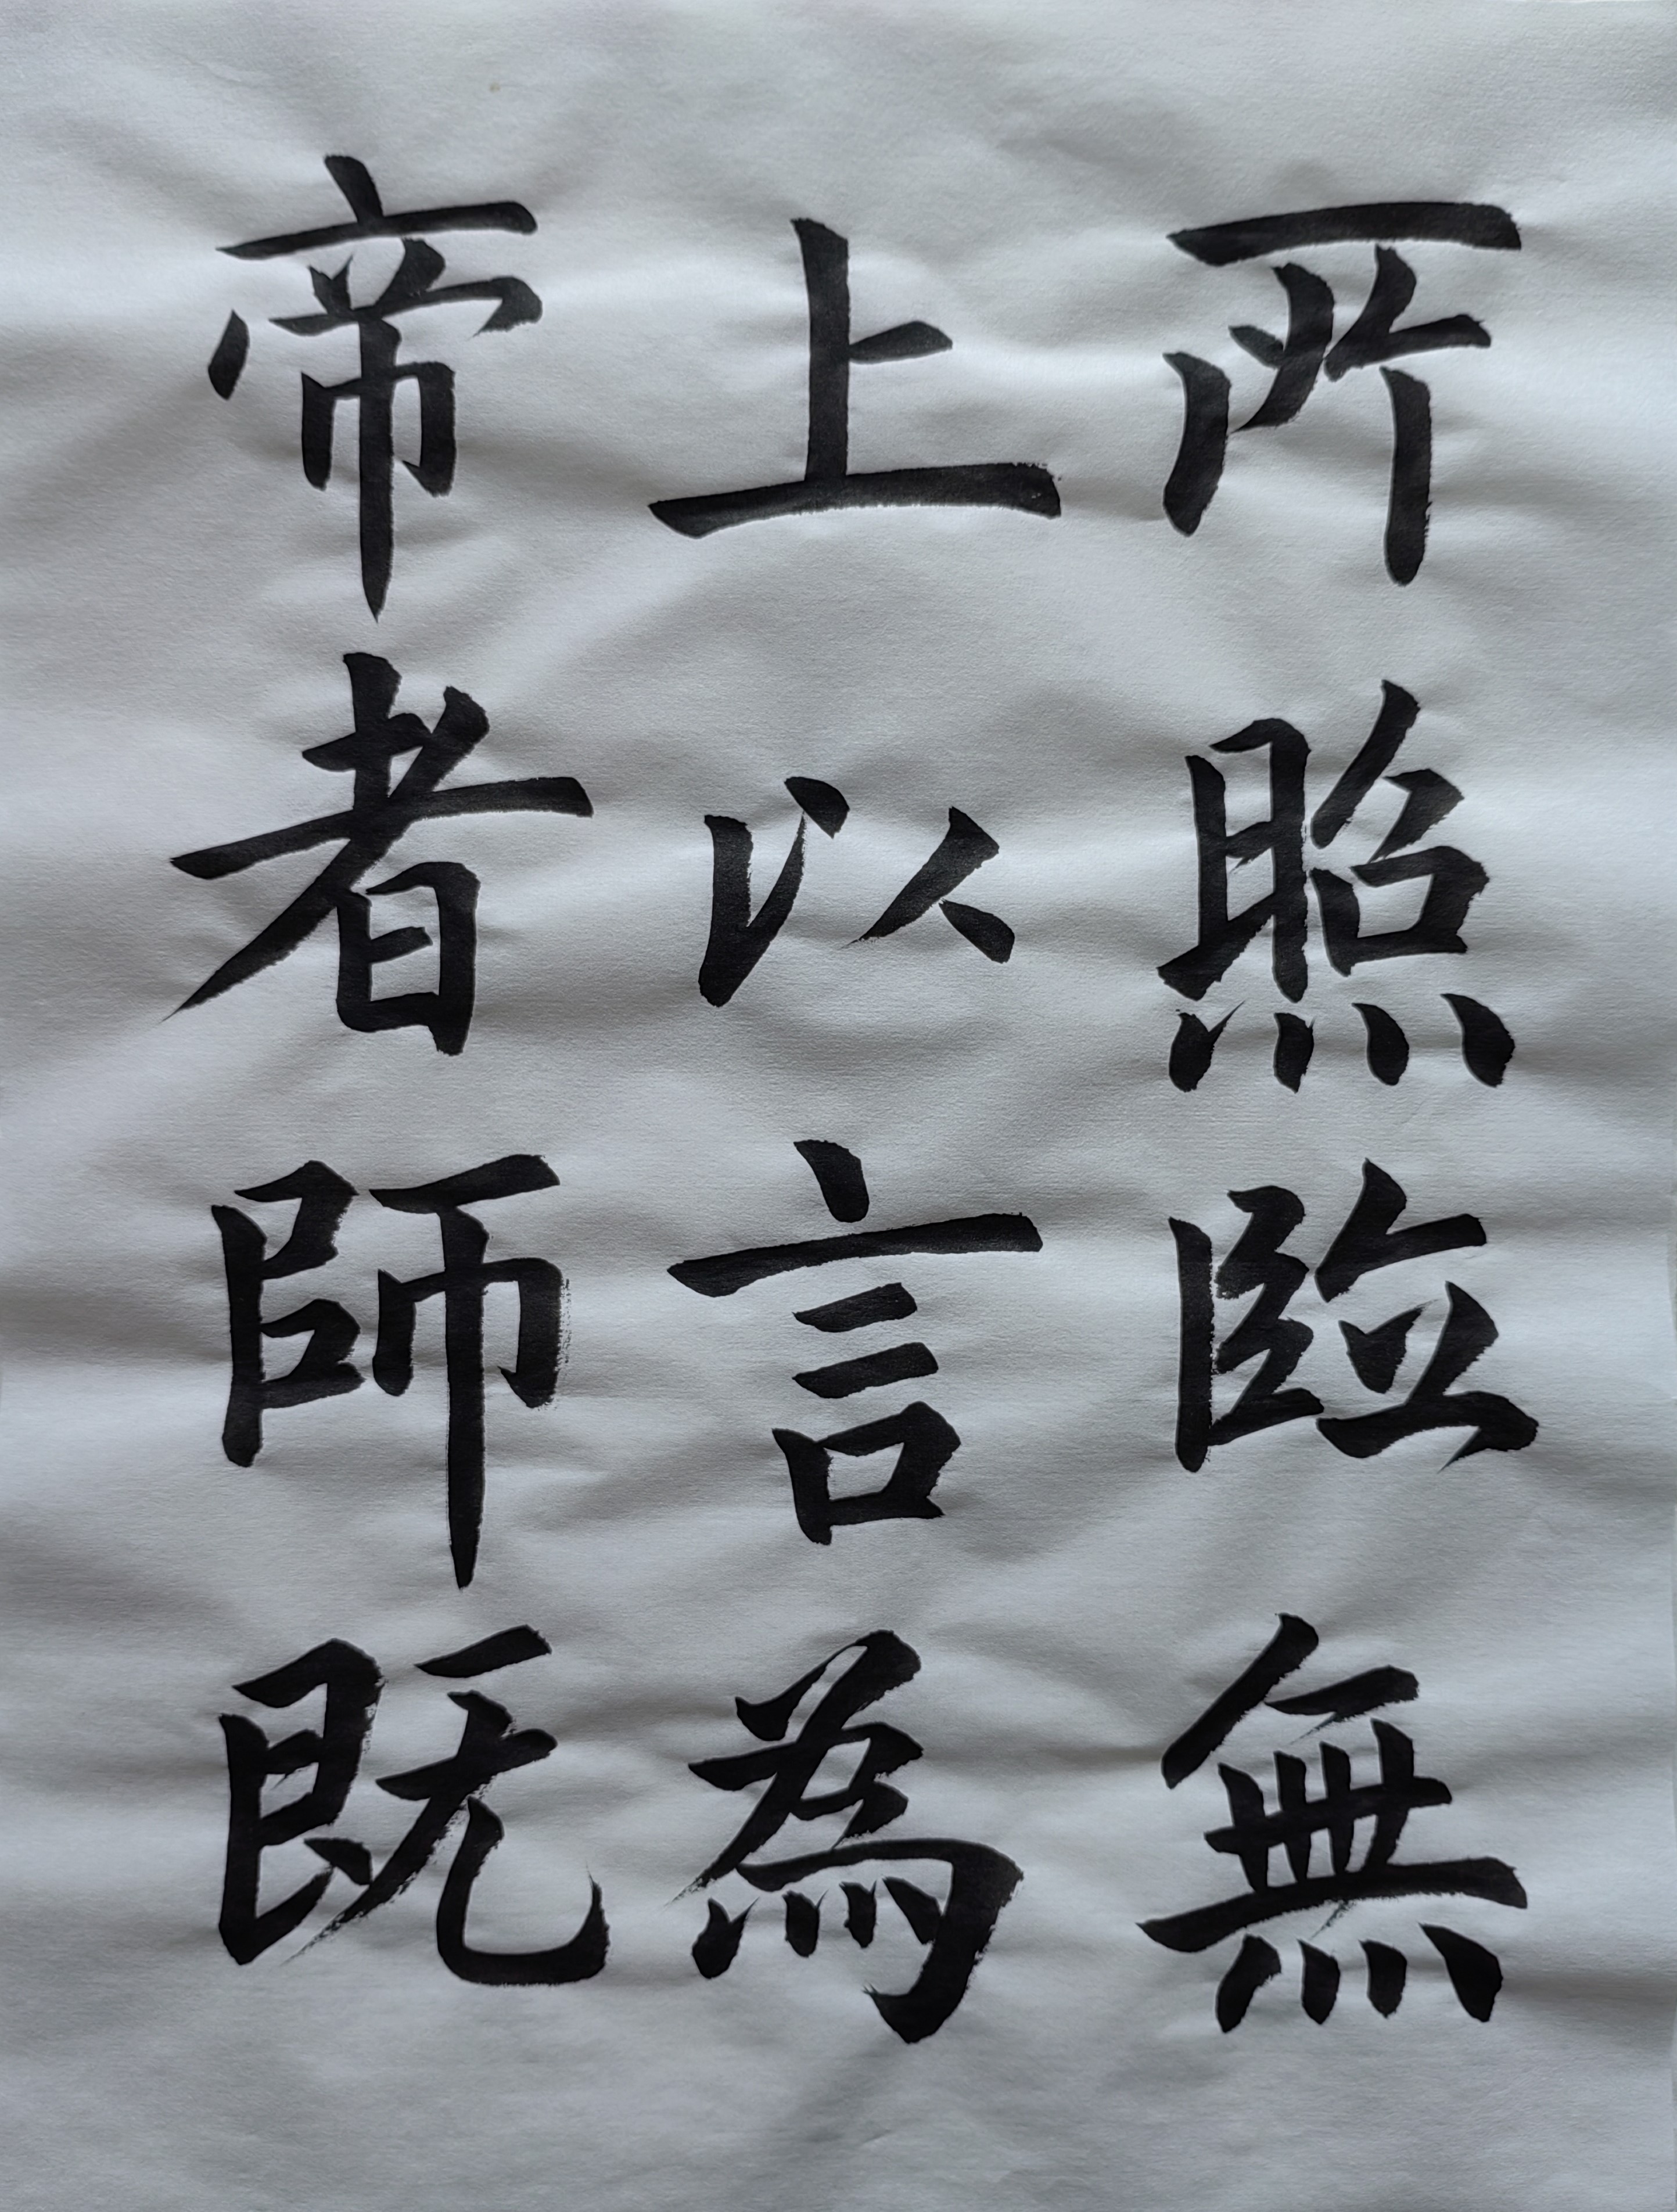 所照臨無
上以言為
帝者師既